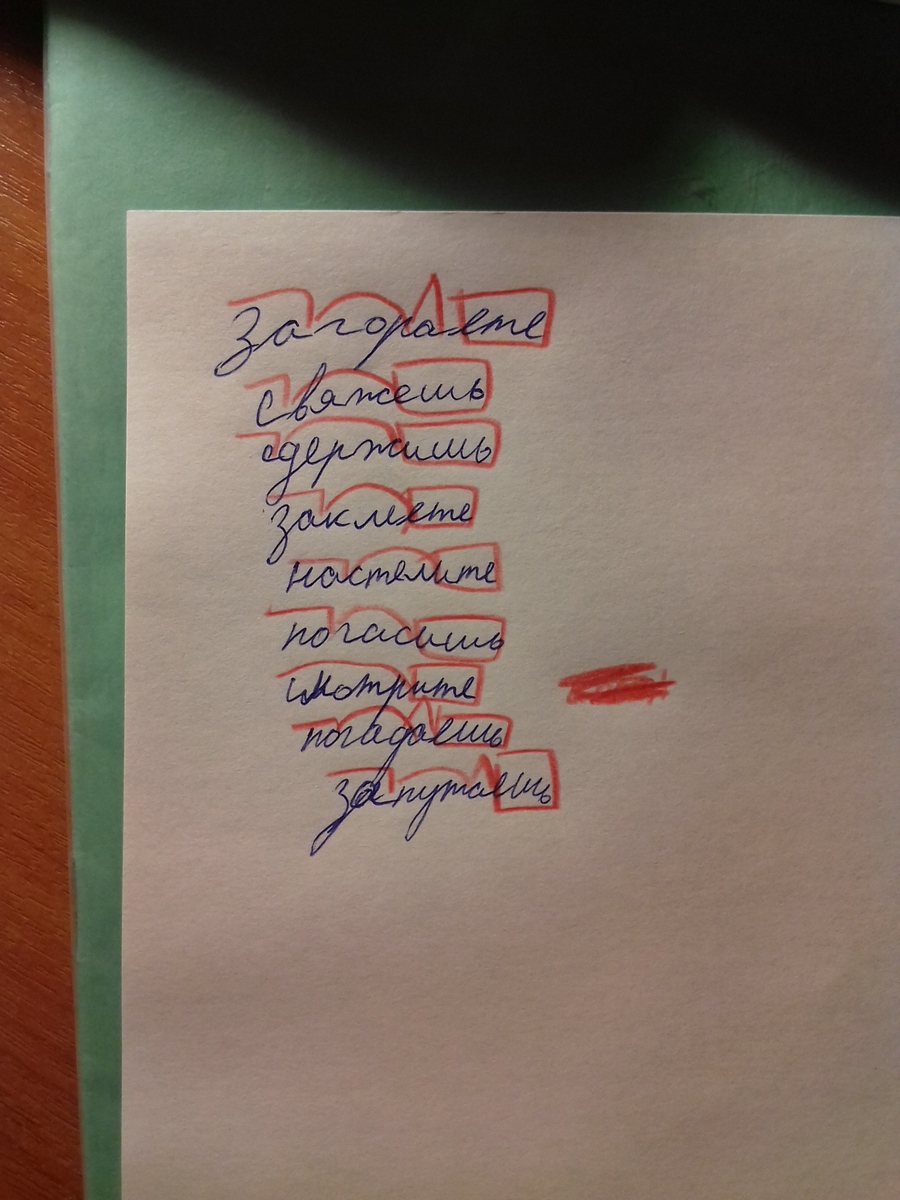 Загораете
свяжешь
сдержишь
заклеете
настелите
погасишь
смотрите
погадаешь
запутаешь